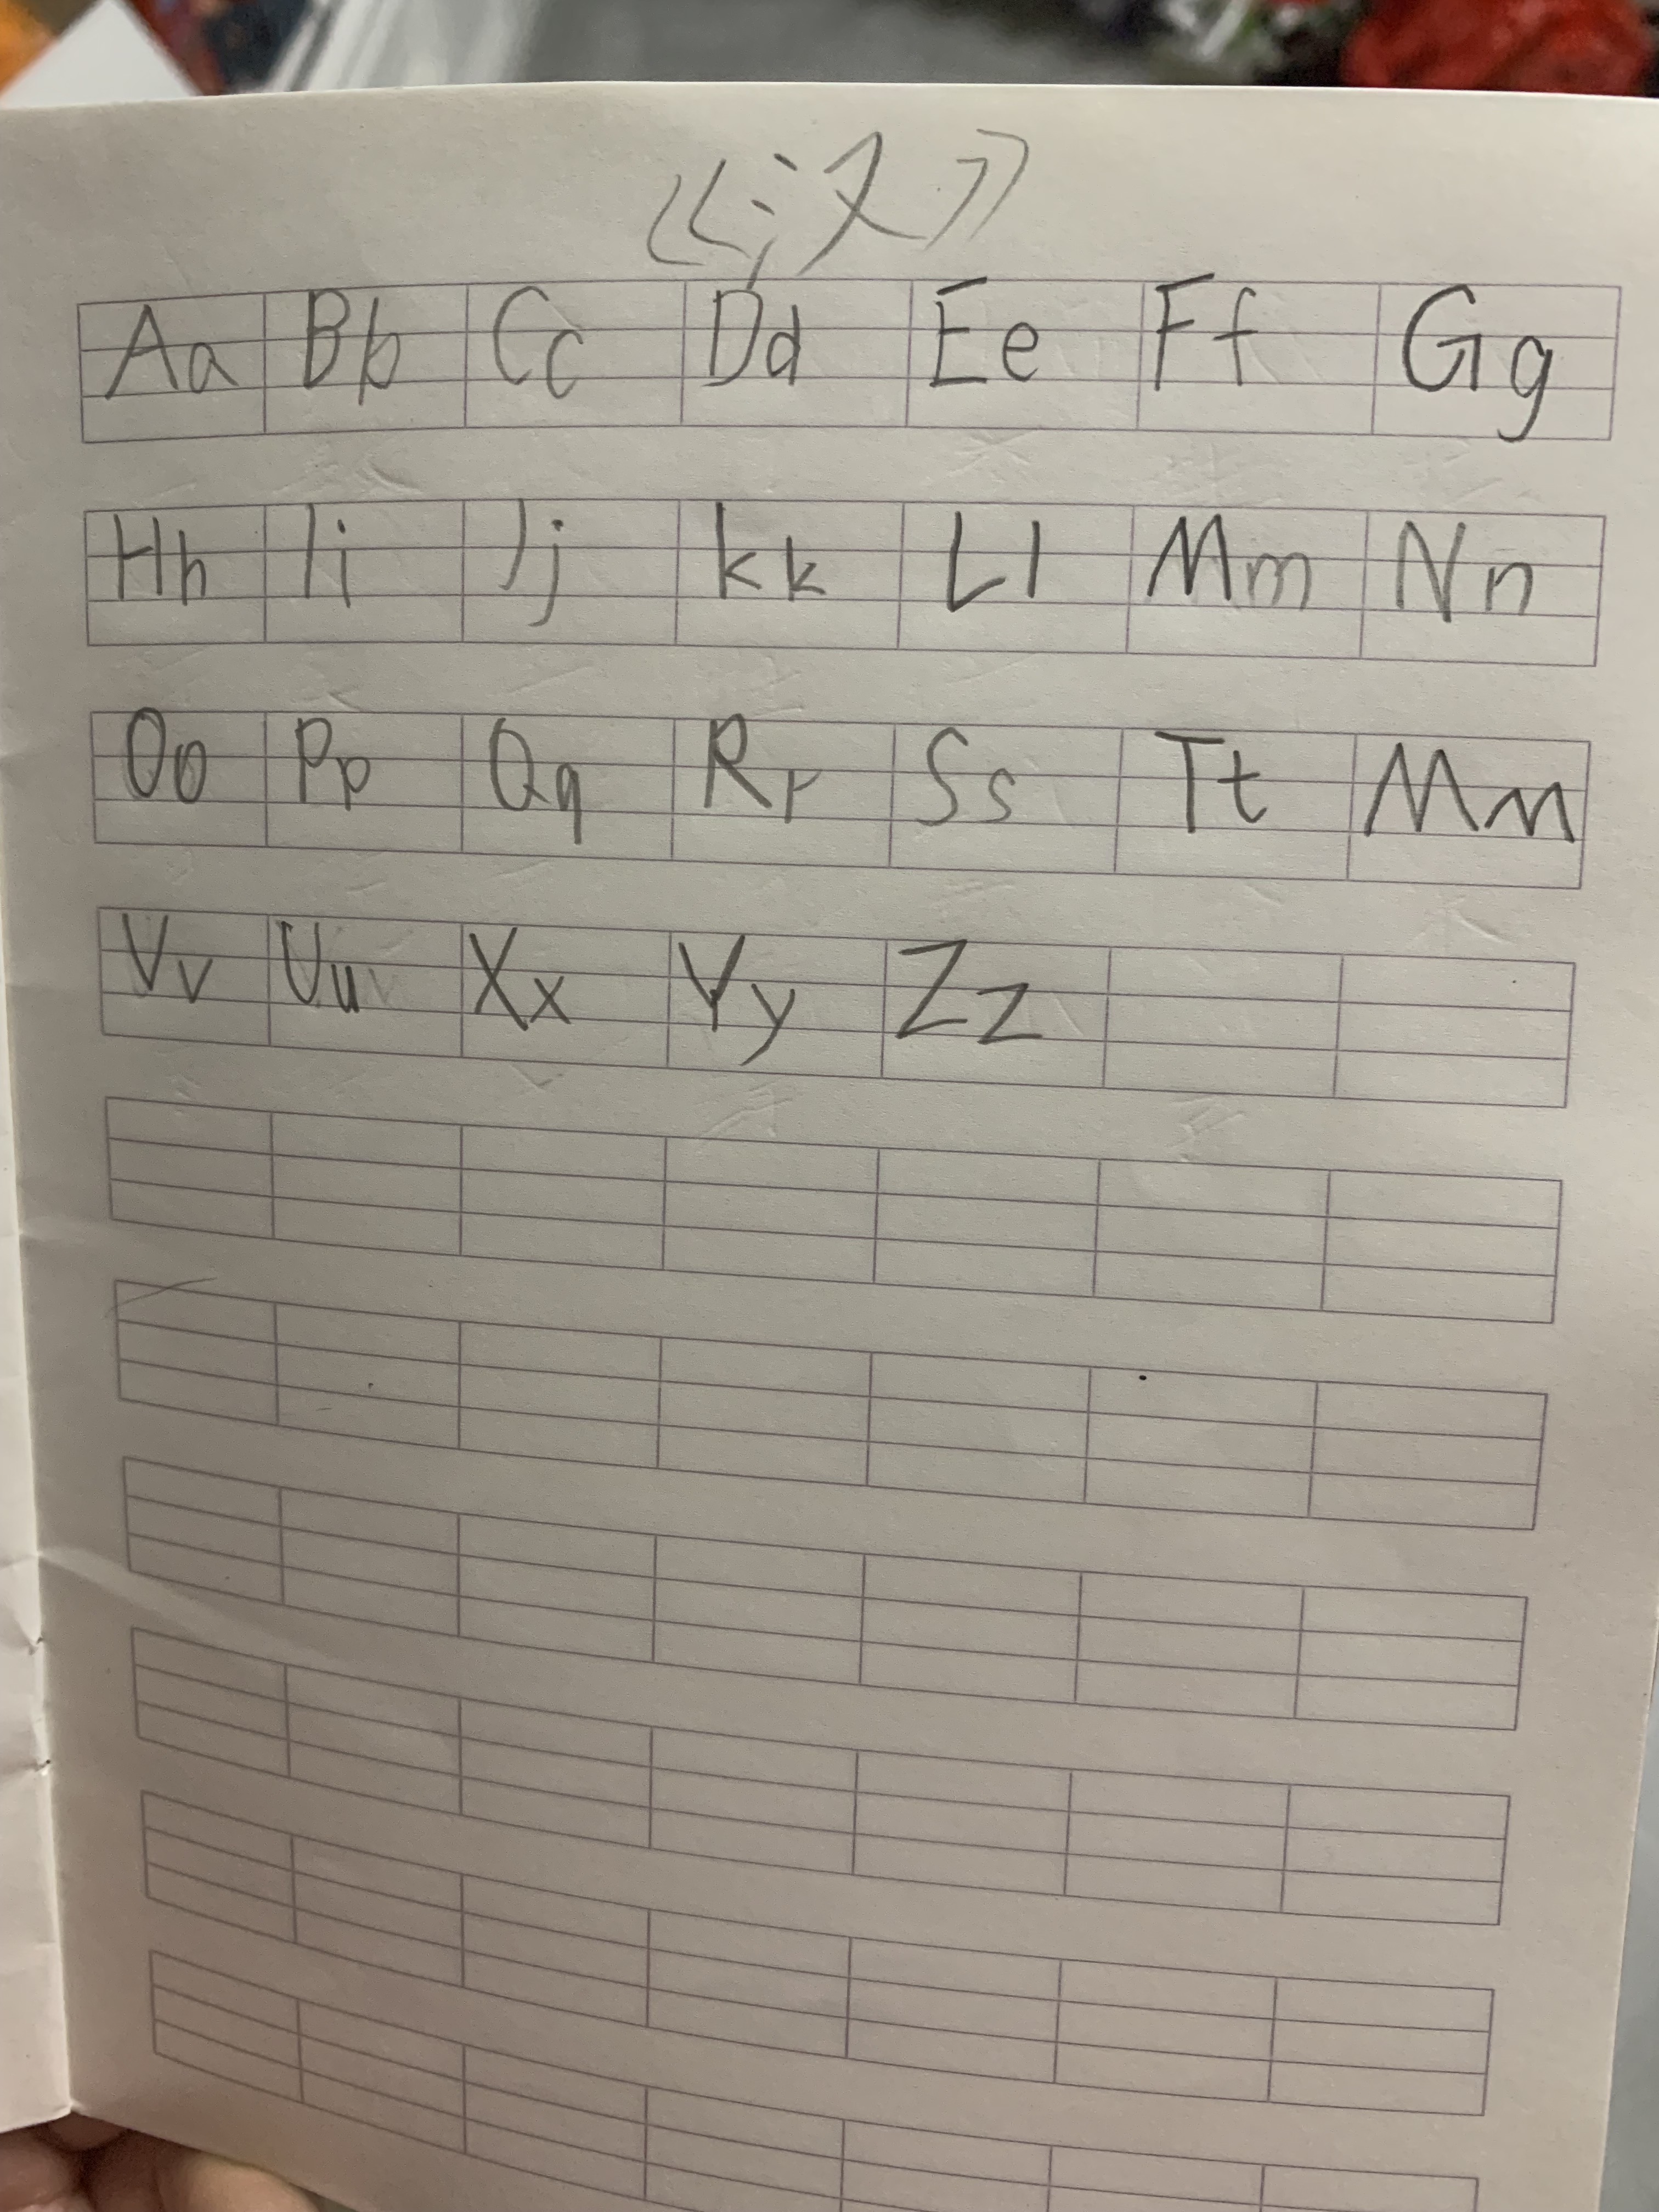 《汉》
Aa Bb Cc Dd Ee Ff Gg
Hh Ii Jj kk Ll Mm Nn
Oo Pp Qq Rr Ss Tt Mm
Vv Uu Xx Yy Zz